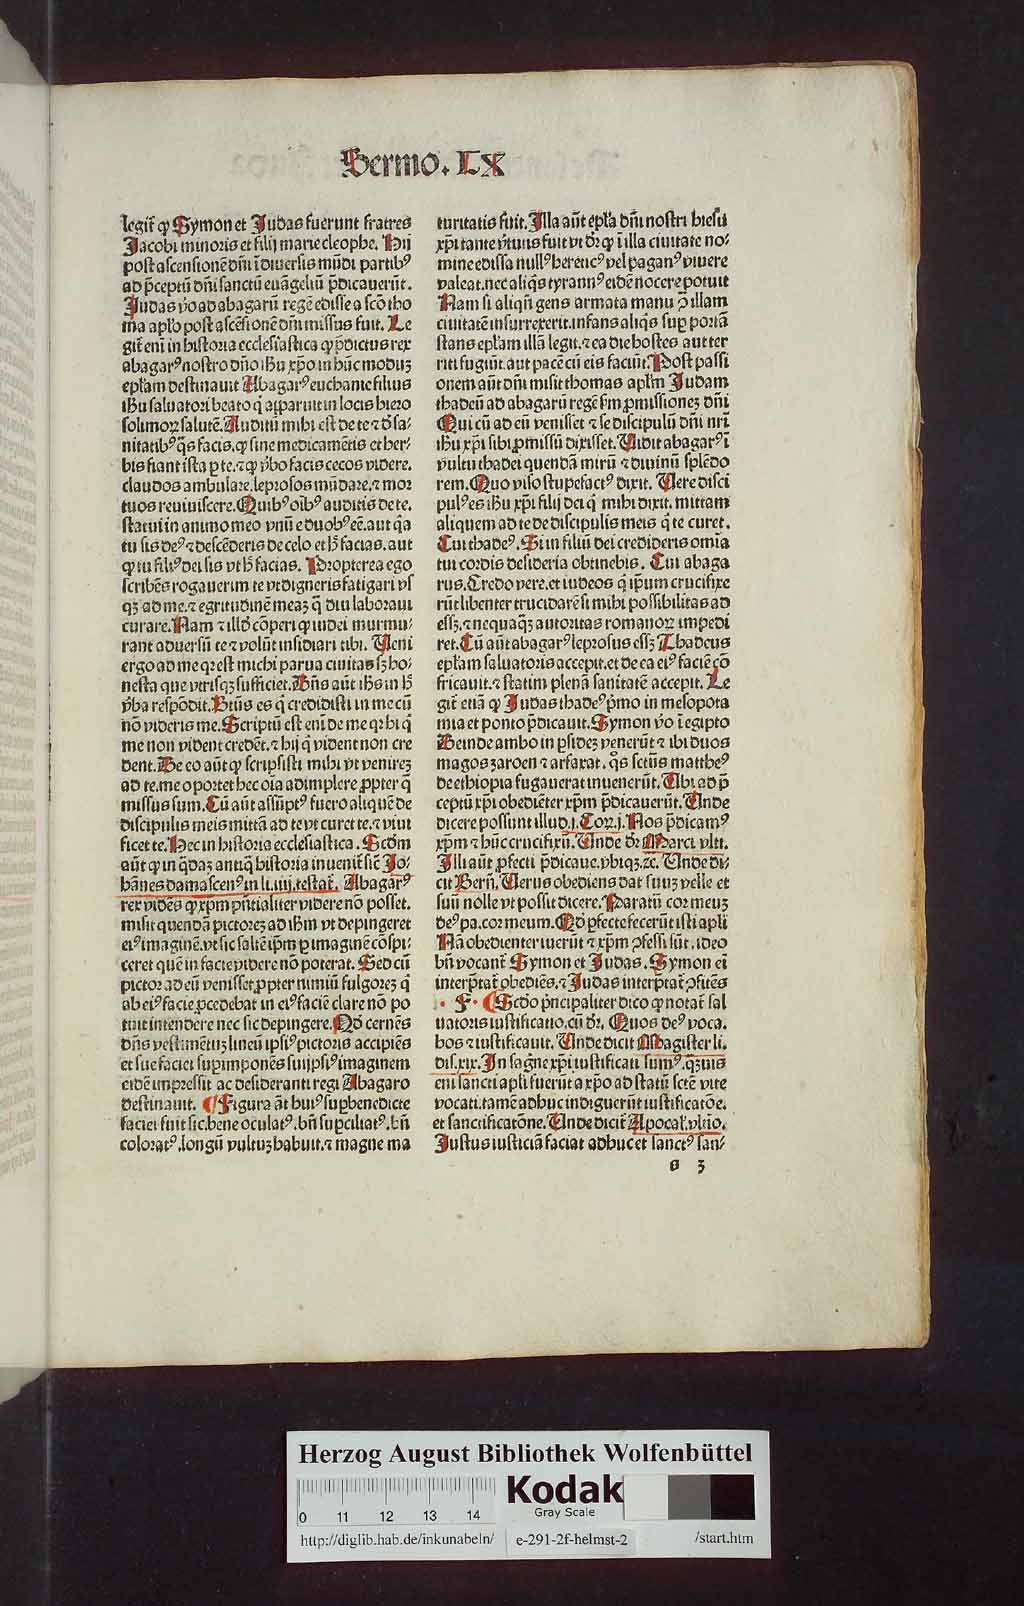 Sermo. LX
legit̃ ꝙ Symon et Judas fuerunt fratres
Jacobi minoris et filij marie cleophe. Hij
post ascensionẽ dñi ĩ diuersis mũdi partibꝰ
ad p̃ceptũ dñi sanctũ euãgeliũ p̃dicauerũt.
Judas ṽo ad abagarũ regẽ edisse a scõ tho
ma apl̃o post ascẽsionẽ dñi missus fuit. Le
git̃ eni in historia ecclesiastica ꝙ p̃dictus rex
abagarꝰ nostro dño ihũ xp̃o in hũc modũ
ep̃lam destinauit Abagarꝰ euchanie filius
ihũ saluatori beato q̃ apparuit in locis hiero
solimoꝝ salutẽ. Auditũ mihi est de te ⁊ d̃ sa-
nitatibꝰ q̃s facis. ꝙ sine medicamẽtis et her-
bis fiant ista ꝑ te. ⁊ ꝙ ṽbo facis cecos videre.
claudos ambulare. leprosos mũdare. ⁊ mor
tuos reuiuiscere. Quibꝰ oĩbꝰ auditis de te.
statui in animo meo vnũ e duobꝰ eẽ. aut q̃a
tu sis deꝰ ⁊ descẽderis de celo et h̃ facias. aut
ꝙ tu filiꝰ dei sis vt h̃ facias. Propterea ego
scribẽs rogauerim te vt digneris fatigari vs
qꝫ ad me. ⁊ egritudinẽ meaꝫ q̃ diu laboraui
curare. Nam ⁊ illd̃ cõperi ꝙ iudei murmu-
rant aduersũ te ⁊ volũt insidiari tibi. Veni
ergo ad me qꝛ est michi parua ciuitas sꝫ ho-
nesta que vtrisqꝫ sufficiet. Dñs aũt ihs in h̃
ṽba respõdit. Btũs es q̃ credidisti in me cũ
nõ videris me. Scriptũ est eni de me qꝛ hi q̃
me non vident credẽt. ⁊ hij q̃ vident non cre
dent. De eo aũt ꝙ scripsisti mihi vt venireꝫ
ad te. me oportet hec oĩa adimplere ꝓpter q̃
missus sum. Cũ aũt assũptꝰ fuero aliquẽ de
discipulis meis mittã ad te vt curet te. ⁊ viui
ficet te. Hec in historia ecclesiastica. Scd̃m
aũt ꝙ in q̃daꝫ antiq̃ historia inuenit̃ sic̃ Jo-
hãnes damascenꝰ in li. iiij. testat̃. Abagarꝰ
rex vidẽs ꝙ xp̃m p̃ntialiter videre nõ posset.
misit quendã pictoreꝫ ad ihm̃ vt depingeret
eiꝰ imaginẽ. vt sic saltẽ ip̃m ꝑ imaginẽ cõspi-
ceret quẽ in facie videre nõ poterat. Sed cũ
pictor ad eũ venisset. ꝓpter nimiũ fulgoreꝫ q̃
ab eiꝰ facie ꝓcedebat in eiꝰ faciẽ clare nõ po
tuit intendere nec sic depingere. Qd̃ cernẽs
dñs vestimẽtuꝫ lineũ ipsiꝰ pictoris accipiẽs
et sue faciei suꝑimponẽs suijpsiꝰ imaginem
eidẽ impressit ac desideranti regi Abagaro
destinauit. Figura ãt huiꝰ suꝑbenedicte
faciei fuit sic. bene oculatꝰ. bñ suꝑciliatꝰ. bñ
coloratꝰ. longũ vultuꝫ habuit. ⁊ magne ma
turitatis fuit. Illa aũt ep̃la dñi nostri hiesu
xp̃i tante ṽtutis fuit vt dr̃ ꝙ ĩ illa ciuitate no-
mine edissa nullꝰ hereticꝰ vel paganꝰ viuere
valeat. nec aliq̃s tyrannꝰ eidẽ nocere potuit
Nam si aliqñ gens armata manu ꝯ̃ illam
ciuitatẽ insurrexerit. infans aliq̃s suꝑ portã
stans ep̃lam illã legit. ⁊ ea die hostes aut ter
riti fugiũt. aut pacẽ cũ eis faciũt. Post passi
onem aũt dñi misit thomas apl̃m Judam
thadeũ ad abagarũ regẽ s̃m ꝓmissioneꝫ dñi
Qui cũ ad eũ venisset ⁊ se discipulũ dñi nr̃i
ihũ xp̃i sibi ꝓmissũ dixisset. Vidit abagarꝰ ĩ
vultu thadei quendã mirũ ⁊ diuinũ splẽdo
rem. Quo viso stupefactꝰ dixit. Vere disci
pulꝰ es ihũ xp̃i filij dei q̃ mihi dixit. mittam
aliquem ad te de discipulis meis q̃ te curet.
Cui thadeꝰ. Si in filiũ dei credideris omĩa
tui cordis desideria obtinebis. Cui abaga
rus. Credo vere. et iudeos q̃ ip̃um crucifixe
rũt libenter trucidarẽ si mihi possibilitas ad
esst. ⁊ nequaqꝫ autoritas romanoꝝ impedi
ret. Cũ aũt abagarꝰ leprosus essꝫ Thadeus
ep̃lam saluatoris accepit. et de ea eiꝰ faciẽ cõ
fricauit. ⁊ statim plenã sanitatẽ accepit. Le
git̃ etiã ꝙ Judas thadeꝰ p̃mo in mesopota
mia et ponto p̃dicauit. Symon ṽo ĩ egipto
Deinde ambo in ꝑsideꝫ venerũt ⁊ ibi duos
magos zaroen ⁊ arfaxat. q̊s sctũs mattheꝰ
de ethiopia fugauerat inuenerũt. Vbi ad p̃
ceptũ xp̃i obediẽter xp̃m p̃dicauerũt. Unde
dicere possunt illud. j. Cor. j. Nos p̃dicamꝰ
xp̃m ⁊ hũc crucifixũ. Unde dr̃ Marci vlti.
Illi aũt ꝓfecti p̃dicaue. vbiqꝫ. ⁊c. Unde di-
cit Bern̄. Verus obediens dat suuꝫ velle et
suũ nolle vt possit dicere. Paratũ cor meuꝫ
deꝰ pa. cor meum. Qd̃ ꝑfecte fecerũt isti apl̃i
Nã obedienter iuerũt ⁊ xp̃m ꝯfessi sũt. ideo
bñ vocant̃ Symon et Judas. Symon eĩ
interp̃tat̃ obediẽs. ⁊ Judas interp̃tat̃ ꝯfitẽs
. F. Scd̃o p̃ncipaliter dico ꝙ notat̃ sal
uatoris iustificatio. cũ dr̃. Quos deꝰ voca.
hos ⁊ iustificauit. Unde dicit Magister li.
dis. xix. In sãg̃ne xp̃i iustificati sumꝰ. qꝫuis
eni sancti apl̃i fuerũt a xp̃o ad statũ sctẽ vite
vocati. tamẽ adhuc indiguerũt iustificatõe.
et sanctificatõne. Unde dicit̃ Apocal̃. vltio.
Justus iusticiã faciat adhuc et sanctꝰ san-
8 3
Herzog August Bibliothek Wolfenbüttel
0 11 12 13 14
Kodak
Gray Scale
http://diglib.hab.de/inkunabeln/ e-291-2f-helmst-2 /start.htm